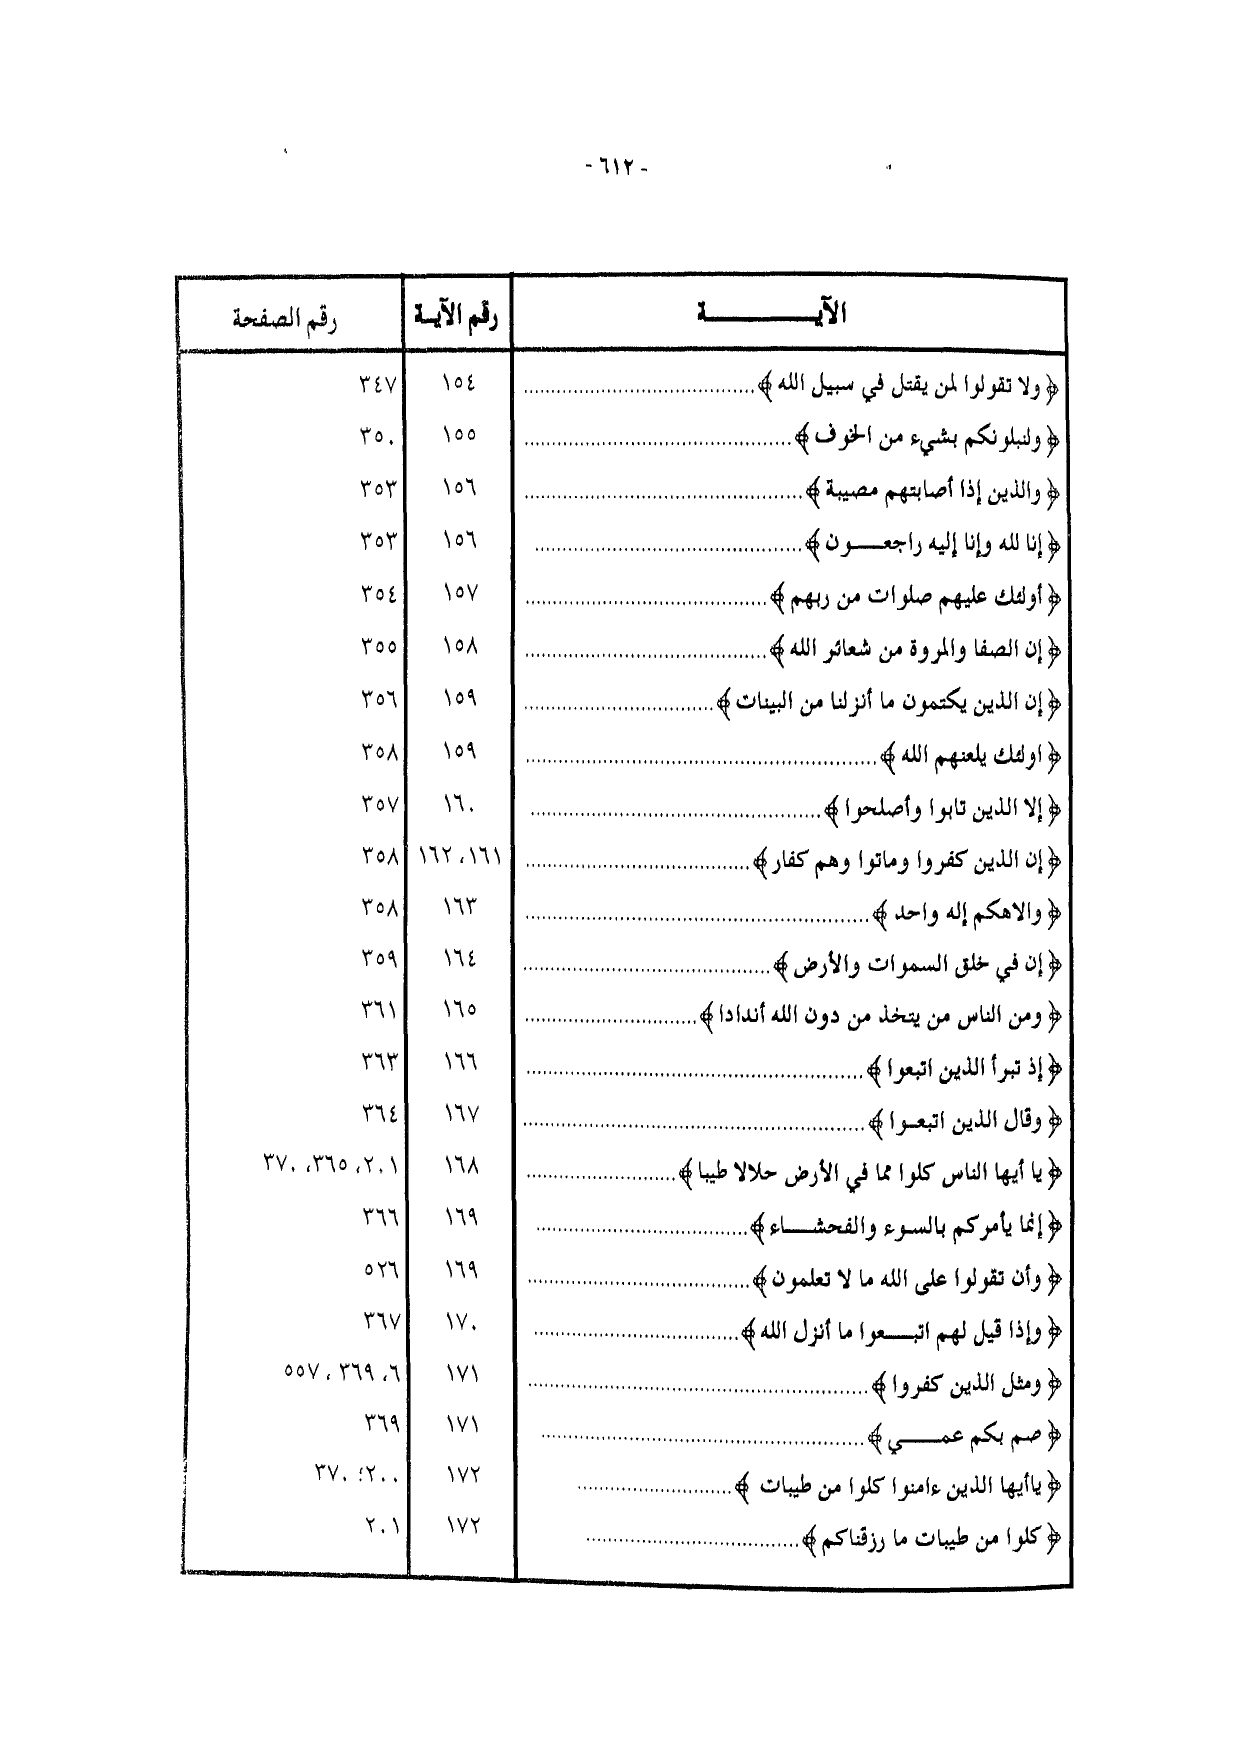 - ٦١٢ -
الآيـــــــــة رقم الآيـة رقم الصفحة
﴿ ولا تقولوا لمن يقتل في سبيل الله ﴾ ١٥٤ ٣٤٧
﴿ ولنبلونكم بشيء من الخوف ﴾ ١٥٥ ٣٥٠
﴿ والذين إذا أصابتهم مصيبة ﴾ ١٥٦ ٣٥٣
﴿ إنا لله وإنا إليه راجعـــون ﴾ ١٥٦ ٣٥٣
﴿ أولئك عليهم صلوات من ربهم ﴾ ١٥٧ ٣٥٤
﴿ إن الصفا والمروة من شعائر الله ﴾ ١٥٨ ٣٥٥
﴿ إن الذين يكتمون ما أنزلنا من البينات ﴾ ١٥٩ ٣٥٦
﴿ اولئك يلعنهم الله ﴾ ١٥٩ ٣٥٨
﴿ إلا الذين تابوا وأصلحوا ﴾ ١٦٠ ٣٥٧
﴿ إن الذين كفروا وماتوا وهم كفار ﴾ ١٦١، ١٦٢ ٣٥٨
﴿ والاهكم إله واحد ﴾ ١٦٣ ٣٥٨
﴿ إن في خلق السموات والأرض ﴾ ١٦٤ ٣٥٩
﴿ ومن الناس من يتخذ من دون الله أندادا ﴾ ١٦٥ ٣٦١
﴿ إذ تبرأ الذين اتبعوا ﴾ ١٦٦ ٣٦٣
﴿ وقال الذين اتبعـوا ﴾ ١٦٧ ٣٦٤
﴿ يا أيها الناس كلوا مما في الأرض حلالا طيبا ﴾ ١٦٨ ٢٠١، ٣٦٥، ٣٧٠
﴿ إنما يأمركم بالسوء والفحشـــاء ﴾ ١٦٩ ٣٦٦
﴿ وأن تقولوا على الله ما لا تعلمون ﴾ ١٦٩ ٥٢٦
﴿ وإذا قيل لهم اتبـــعوا ما أنزل الله ﴾ ١٧٠ ٣٦٧
﴿ ومثل الذين كفروا ﴾ ١٧١ ٦، ٣٦٩، ٥٥٧
﴿ صم بكم عمــــي ﴾ ١٧١ ٣٦٩
﴿ ياأيها الذين ءامنوا كلوا من طيبات ﴾ ١٧٢ ٢٠٠؛ ٣٧٠
﴿ كلوا من طيبات ما رزقناكم ﴾ ١٧٢ ٢٠١